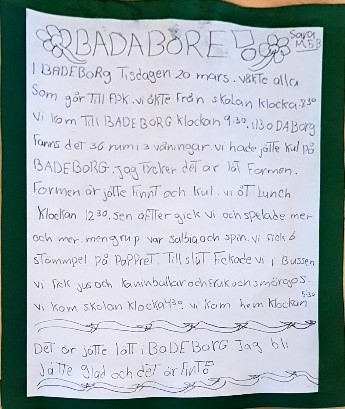 BADABORE!
Sara M 5B
I BADEBORG Tisdagen 20 mars. våkte alla
Som går Till FPK. vi åkte Från skolan klocka 8:30
Vi kom Till BADEBORG klockan 9:30. i BODABorg
Fanns det 30 rum i 3 våningar. vi hade jätte kul på
BADEBORG. Jag Tycker det är lät Formen.
Formen är jätte Finnt och kul. vi åt Lunch
klockan 12 30. sen after gick vi och spelade mer
och mer. men grup var salbia och spin. vi Fick 6
stammpel på PaPPret. Till slut Fickade vi i Bussen
vi Fick jus och kaninbullar och Frukt och smörgos.
vi kom skolan klocka 4:30 vi kom hem klockan 5:30
Det är jätte lätt i BODEBORG Jag bli
jätte glad och det är Fint